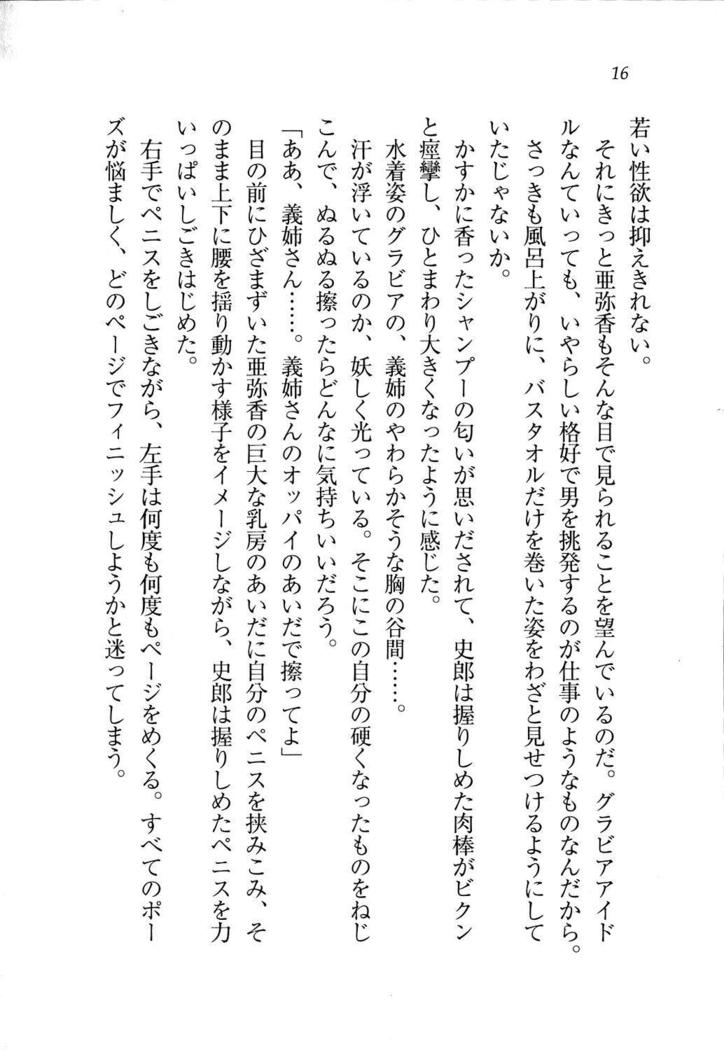 16
若い性欲は抑えきれない。
それにきっと亜弥香もそんな目で見られることを望んでいるのだ。グラビアアイド
ルなんていっても、いやらしい格好で男を挑発するのが仕事のようなものなんだから。
さっきも風呂上がりに、バスタオルだけを巻いた姿をわざと見せつけるようにして
いたじゃないか。
かすかに香ったシャンプーの匂いが思いだされて、史郎は握りしめた肉棒がビクン
と痙攣し、ひとまわり大きくなったように感じた。
水着姿のグラビアの、義姉のやわらかそうな胸の谷間……。
汗が浮いているのか、妖しく光っている。そこにこの自分の硬くなったものをねじ
こんで、ぬるぬる擦ったらどんなに気持ちいいだろう。
「ああ、義姉さん……。義姉さんのオッパイのあいだで擦ってよ」
目の前にひざまずいた亜弥香の巨大な乳房のあいだに自分のペニスを挟みこみ、そ
のまま上下に腰を揺り動かす様子をイメージしながら、史郎は握りしめたペニスを力
いっぱいしごきはじめた。
右手でペニスをしごきながら、左手は何度も何度もページをめくる。すべてのポー
ズが悩ましく、どのページでフィニッシュしようかと迷ってしまう。